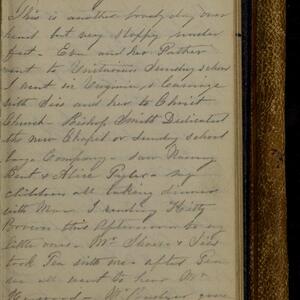 This is another lovely day over
head but very sloppy under
feet - Eva and her Father
went to Unitarian Sunday school
I went in Virginia's Carriage
with Sis and her to Christ
Church - Bishop Smith Dedicated
the new Chapel or sunday school
large Company - saw Nanny
Bent & Alice Taylor - my
children all taking dinner
with Mama I reading Kitty
Brown this Afternoon to my
little ones - Mr & Sis
took Tea with me - after Tea
we all went to hear Mr
Heywood - Mr